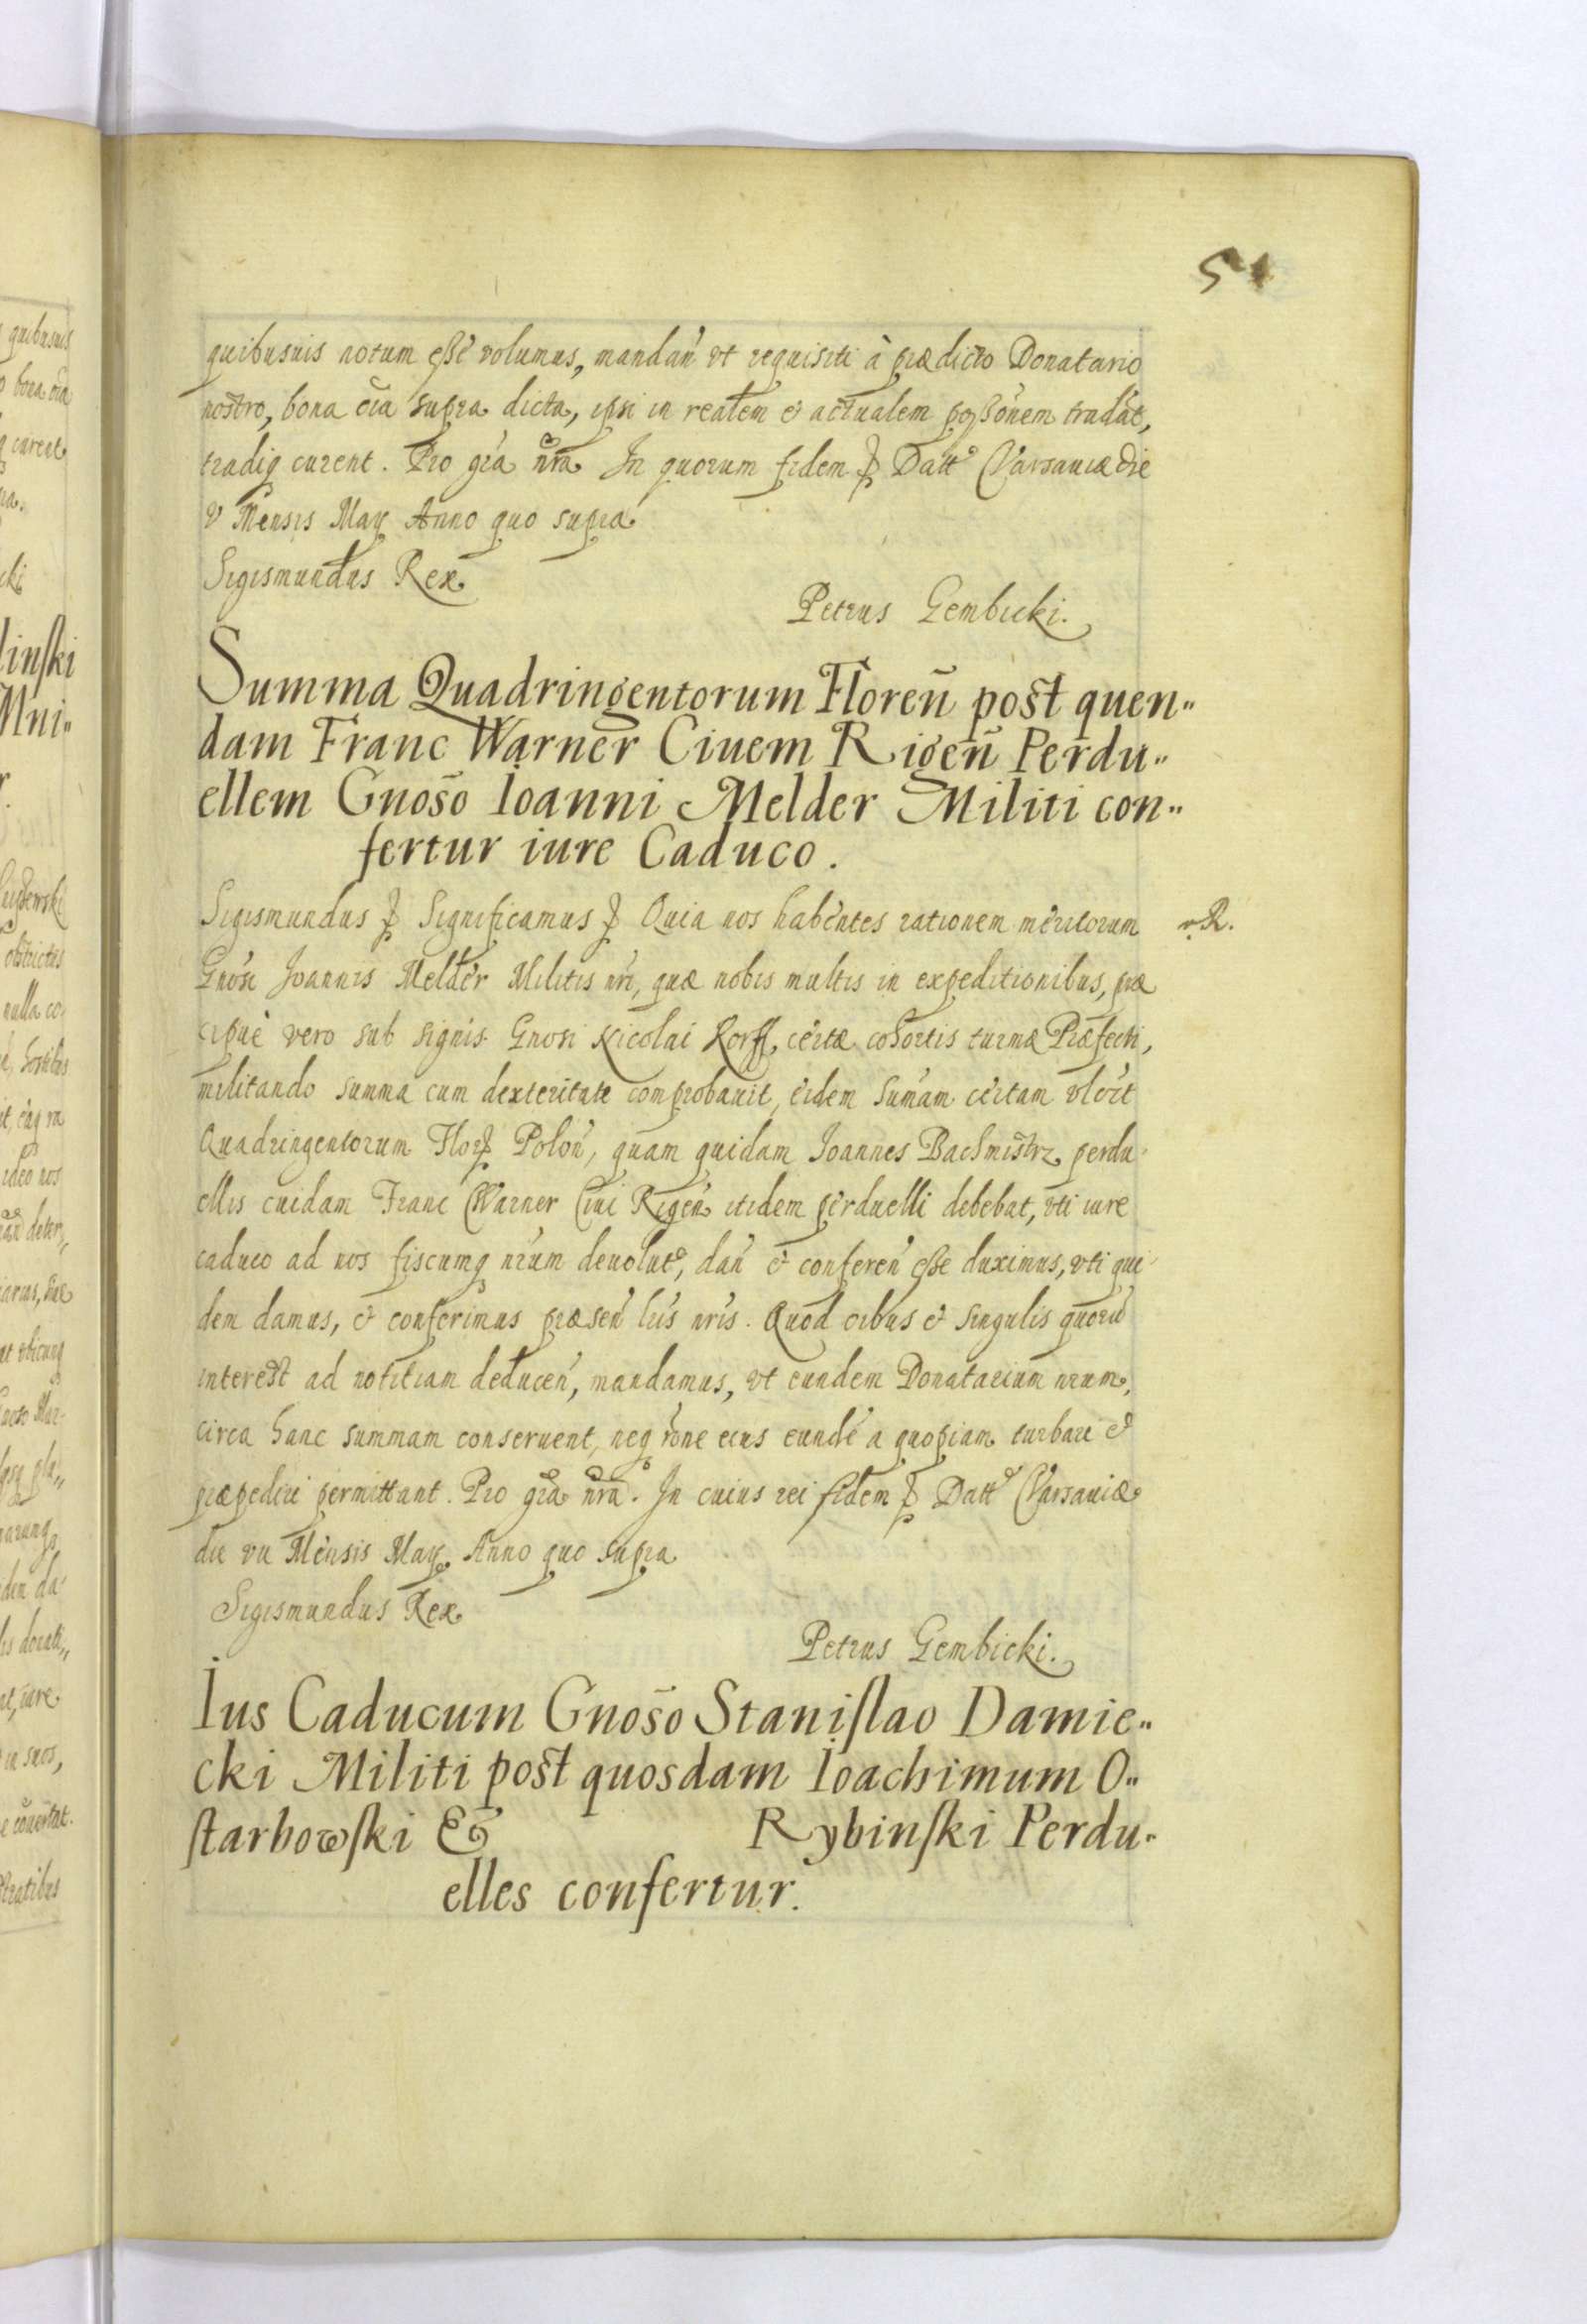 51
quibusuis notum esse volumus, mandań vt requisiti à prædicto Donatario
nostro, bona oīa supra dicta, ipsi in realem et actualem possōnem tradāt,
tradiq curent. Pro grā nrā. In quorum fidem ꝑ Datt Varsauiæ die
v Mensis Maÿ Anno quo supra
Sigismundus Rex
Petrus Gembicki.
Summa Quadringentorum Floren̄ post quen„
dam Franc Warner Ciuem Rigen̄ Perdu„
ellem Gnosō Ioanni Melder Militi con„
fertur iure Caduco.
Sigismundus ꝑ Significamus ꝑ Quia nos habentes rationem meritorum
R.
Gnōsi Joannis Melder Militis nri, quæ nobis multis in expeditionibus, præ
cipuè vero sub signis Gnosi Nicolai Korff, certæ cohortis turmæ Præfecti,
militando summa cum dexteritate comprobauit, eidem Sumām certam
Quadringentorum Flor Polon̄, quam quidam Joannes Bachmistrz perdu
ellis cuidam Franc Warner Ciui Rigen̄ itidem perduelli debebat, vti iure
caduco ad nos fiscumq nrūm deuolut, dan̄ et conferen̄ esse duximus, vti qui
dem damus, et conferimus præsen̄ lris nris. Quod oibus et singulis quorū
interest ad notitiam deducen̄, mandamus, vt eundem Donatarium nrum,
circa hanc summam conseruent, neq rōne eius eundē a quopiam turbari et
præpediri permittant. Pro grā nrā. In cuius rei fidem ꝑ Datt Varsauiæ
die vii Mensis Maÿ Anno quo supra
Sigismundus Rex
Petrus Gembicki.
Ius Caducum Gnosō Staniſlao Damie„
cki Militi post quosdam Ioachimum O„
ſtarbowſki & Rybinſki Perdu„
elles confertur.